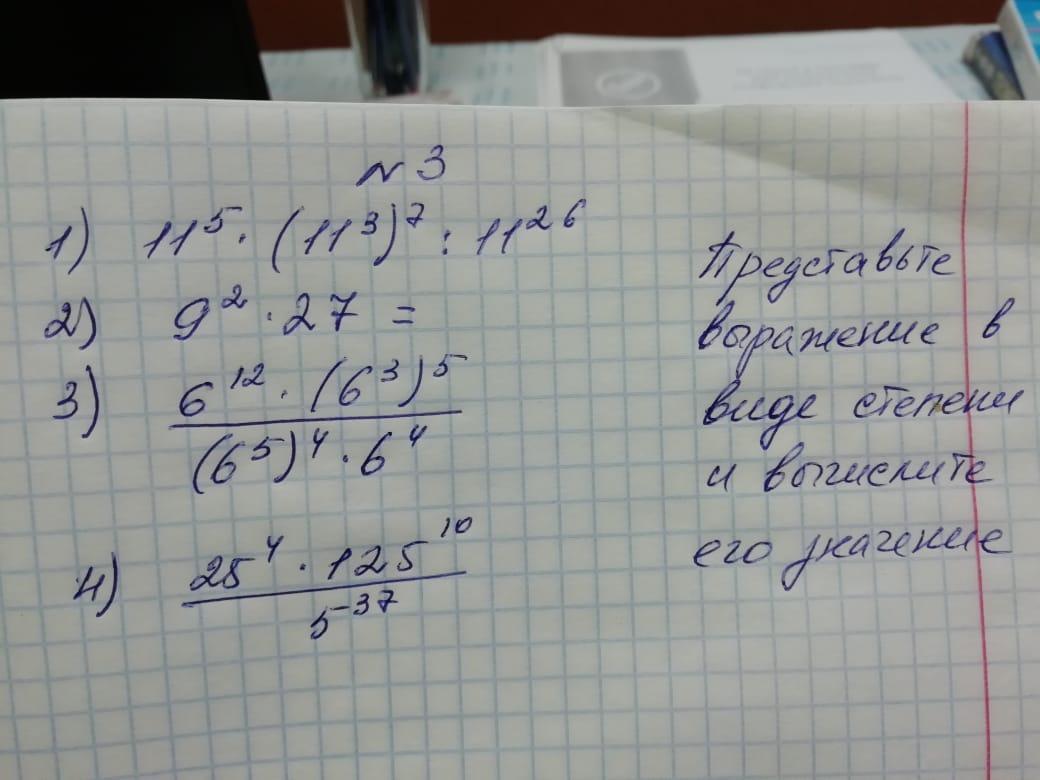 №3
1) 11⁵ · (11³)⁷ : 11²⁶
2) 9² · 27 =
3) 6¹² · (6³)⁵
(6⁵)⁴ · 6⁴
4) 25⁴ · 125¹⁰
5⁻³⁷
Представьте
выражение в
виде степени
и вычислите
его значение